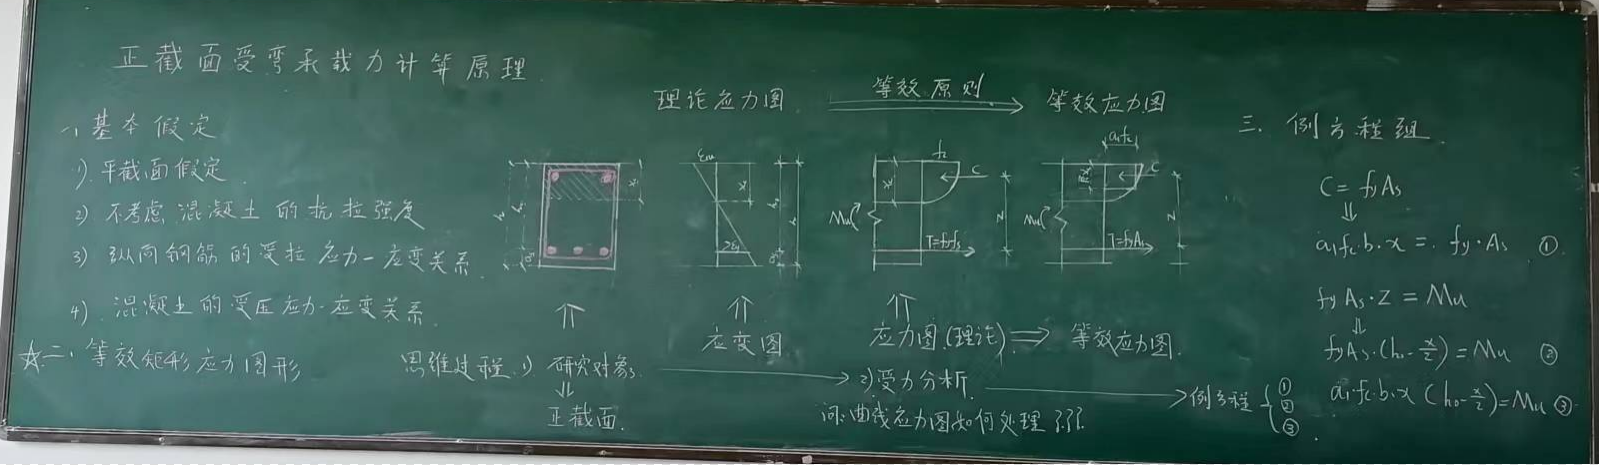 正截面受弯承载力计算原理
一、基本假定
1). 平截面假定.
2) 不考虑混凝土的抗拉强度
3) 纵向钢筋的受拉应力-应变关系.
4). 混凝土的受压应力-应变关系.
☆二、等效矩形应力图形
理论应力图 等效原则 等效应力图
fc
α1fc
C
C
Mu
Mu
T=fyAs
Z
Z
应变图
应力图(理论) ⇒ 等效应力图.
思维过程. 1) 研究对象 → 2) 受力分析 → 例方程 { ① ② ③
⇓
正截面.
问: 曲线应力图如何处理???
三. 例方程组
C = fyAs
⇓
α1fc·b·x = fy·As ①
fyAs·Z = Mu
⇓
fyAs·(h0-x/2) = Mu ②
α1·fc·b·x (h0-x/2) = Mu ③